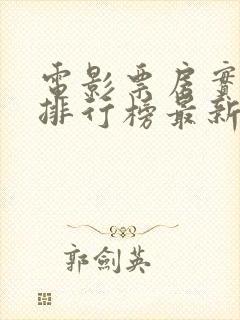 電影票房實
排行榜最新
郭劍英